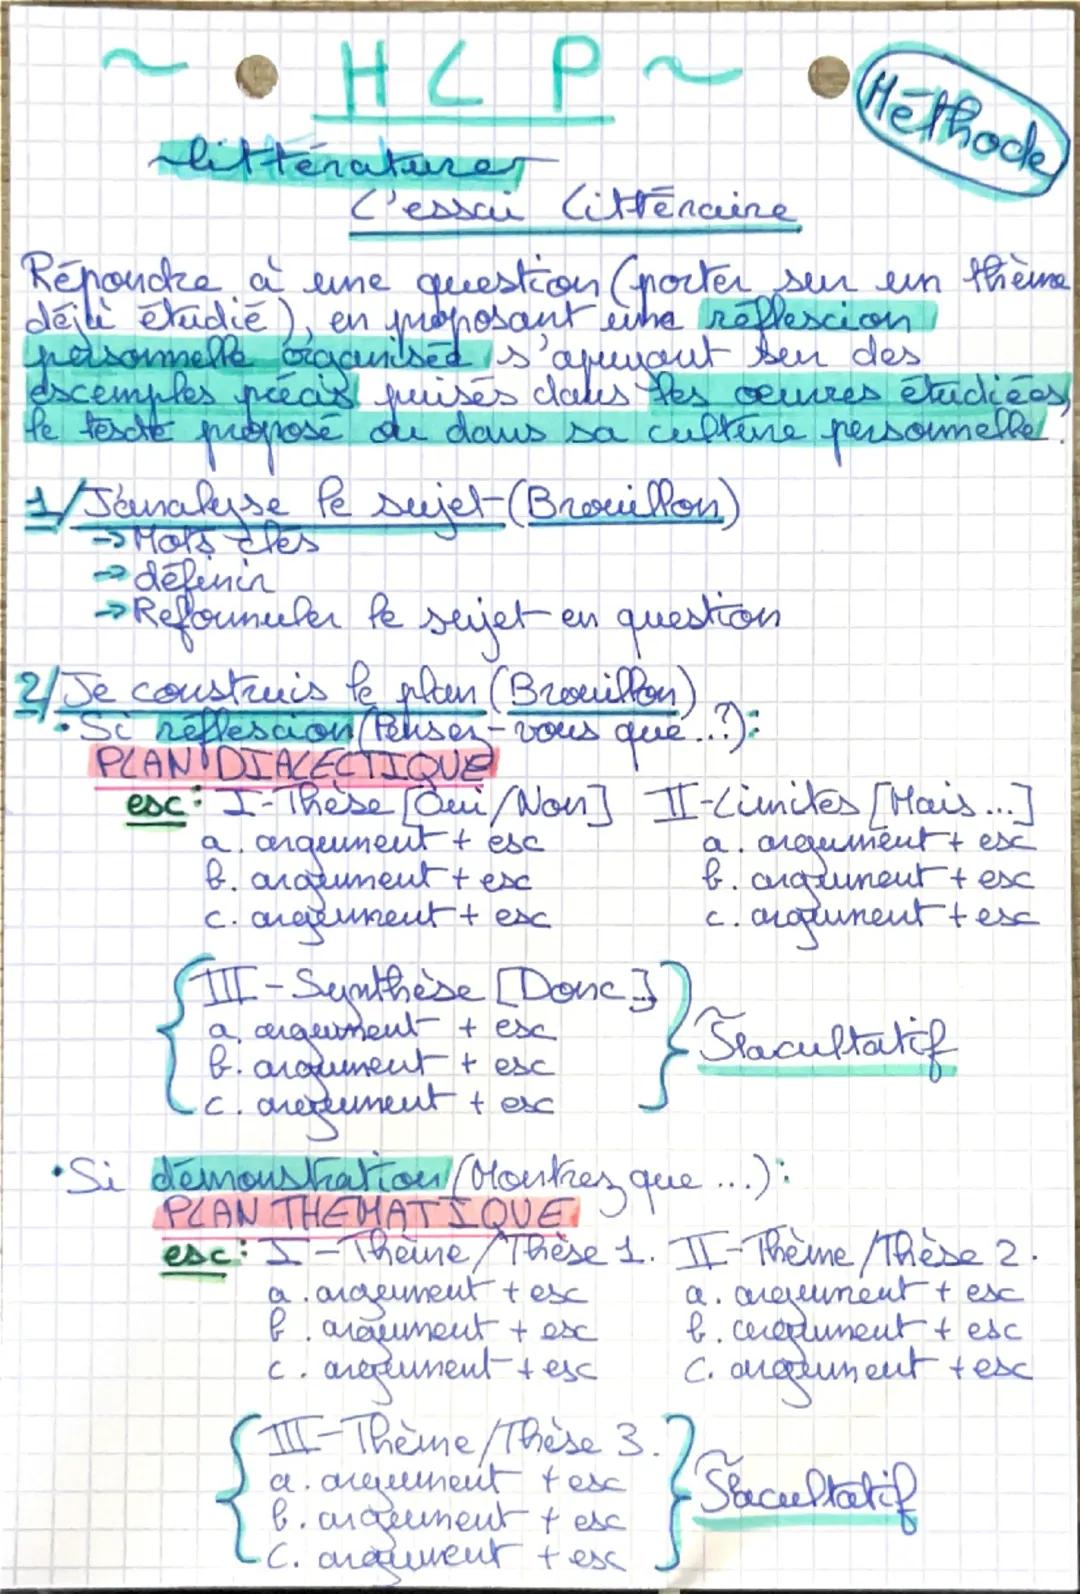 ~ H L P ~
Méthode
littérature
L'essai littéraire
Répondre à une question (porter sur un thème
déjà étudié), en proposant une réflexion
personnelle organisée s'apuyant sur des
exemples précis puisés dans les œuvres étudiées,
le texte proposé ou dans sa culture personnelle.
1/ J'analyse le sujet (Brouillon)
→ Mots clés
→ définir
→ Reformuler le sujet en question
2/ Je construis le plan (Brouillon)
• Si réflexion (Pensez-vous que...?):
PLAN DIALECTIQUE
ex: I-Thèse [Oui/Non] II-Limites [Mais...]
a. argument + ex a. argument + ex
b. argument + ex b. argument + ex
c. argument + ex c. argument + ex
III-Synthèse [Donc]
a. argument + ex
b. argument + ex
c. argument + ex
Facultatif
• Si démonstration (Montrez que ...):
PLAN THEMATIQUE
ex: I-Thème/Thèse 1. II-Thème/Thèse 2.
a. argument + ex a. argument + ex
b. argument + ex b. argument + ex
c. argument + ex c. argument + ex
III-Thème/Thèse 3.
a. argument + ex
b. argument + ex
c. argument + ex
Facultatif